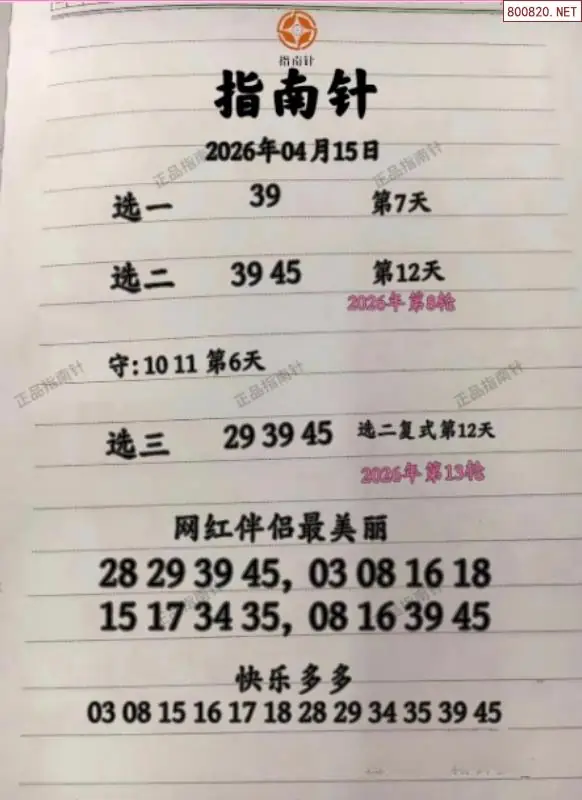 800820.NET
指南针
指南针
2026年04月15日
正品指南针 正品指南针
选一 39 第7天
选二 39 45 第12天
2026年第8轮
守:10 11 第6天
正品指南针 正品指南针 正品指南针
选三 29 39 45 选二复式第12天
2026年第13轮
网红伴侣最美丽
28 29 39 45, 03 08 16 18
15 17 34 35, 08 16 39 45
正品指南针 正品指南针
快乐多多
03 08 15 16 17 18 28 29 34 35 39 45